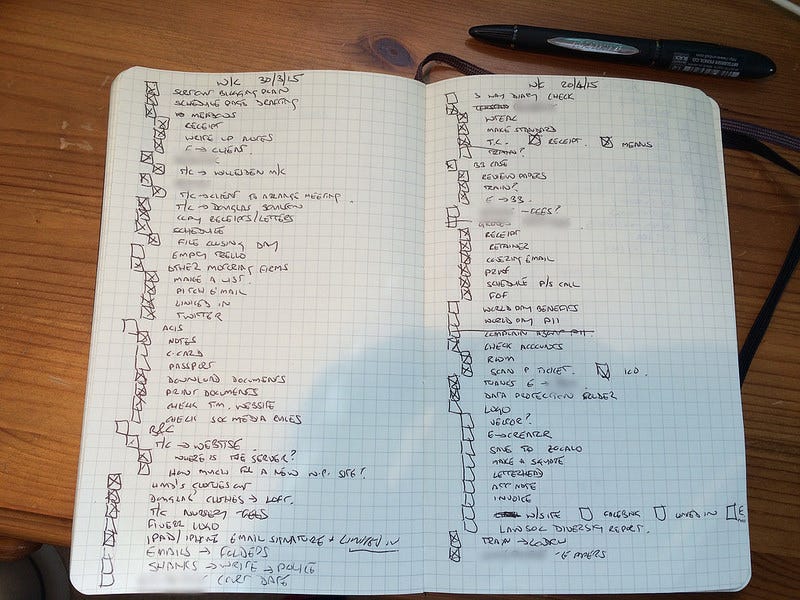 W/C 30/3/15
SCHEDULE PAGE DRAFTING
MEADOWS
RECEIPT
WRITE UP NOTES
E → CLIENT
T/C → WILLESDEN M/C
T/C → CLIENT TO ARRANGE MEETING.
T/C → DOUGLAS
RECEIPTS/LETTERS
SCHEDULE
FILE CLOSING DAY
EMPTY TRELLO
OTHER MOTORING FIRMS
MAKE A LIST.
PITCH EMAIL
LINKED IN
TWITTER
NOTES
PASSPORT
DOWNLOAD DOCUMENTS
PRINT DOCUMENTS
CHECK T.M. WEBSITE
CHECK SOC MEDIA RULES
T/C → WEBTISE
WHERE IS THE SERVER?
HOW MUCH FOR A NEW W.P. SITE?
CLOTHES OUT
DOUGLAS' CLOTHES → LOFT.
T/C NURSERY FEES
FIVERR LOGO
IPAD/IPHONE EMAIL SIGNATURE + LINKED IN
EMAILS → FOLDERS
SHANKS → WRITE → POLICE
COURT DATE
W/C 20/4/15
3 WAY DIARY CHECK
MAKE STANDARD
T.C. RECEIPT MENUS
TRAIN?
B3 CASE
REVIEW PAPERS
TRAIN?
E → B3.
- FEES?
RECEIPT
RETAINER
COVERING EMAIL
PROOF
SCHEDULE P/S CALL
FOF
WORLD DAY BENEFITS
WORLD DAY PII
COMPLAIN ABOUT PII.
CHECK ACCOUNTS
ROOM
SCAN P TICKET. ICO.
THANKS E →
DATA PROTECTION FOLDER
LOGO
VECTOR?
E → CREATER
SAVE TO ZOCALO
MAKE A SQUARE
LETTERHEAD
ATT NOTE
INVOICE
W/SITE FACEBOOK LINKED IN
LAWSOC DIVERSITY REPORT.
TRAIN → LONDON
- E PAPERS